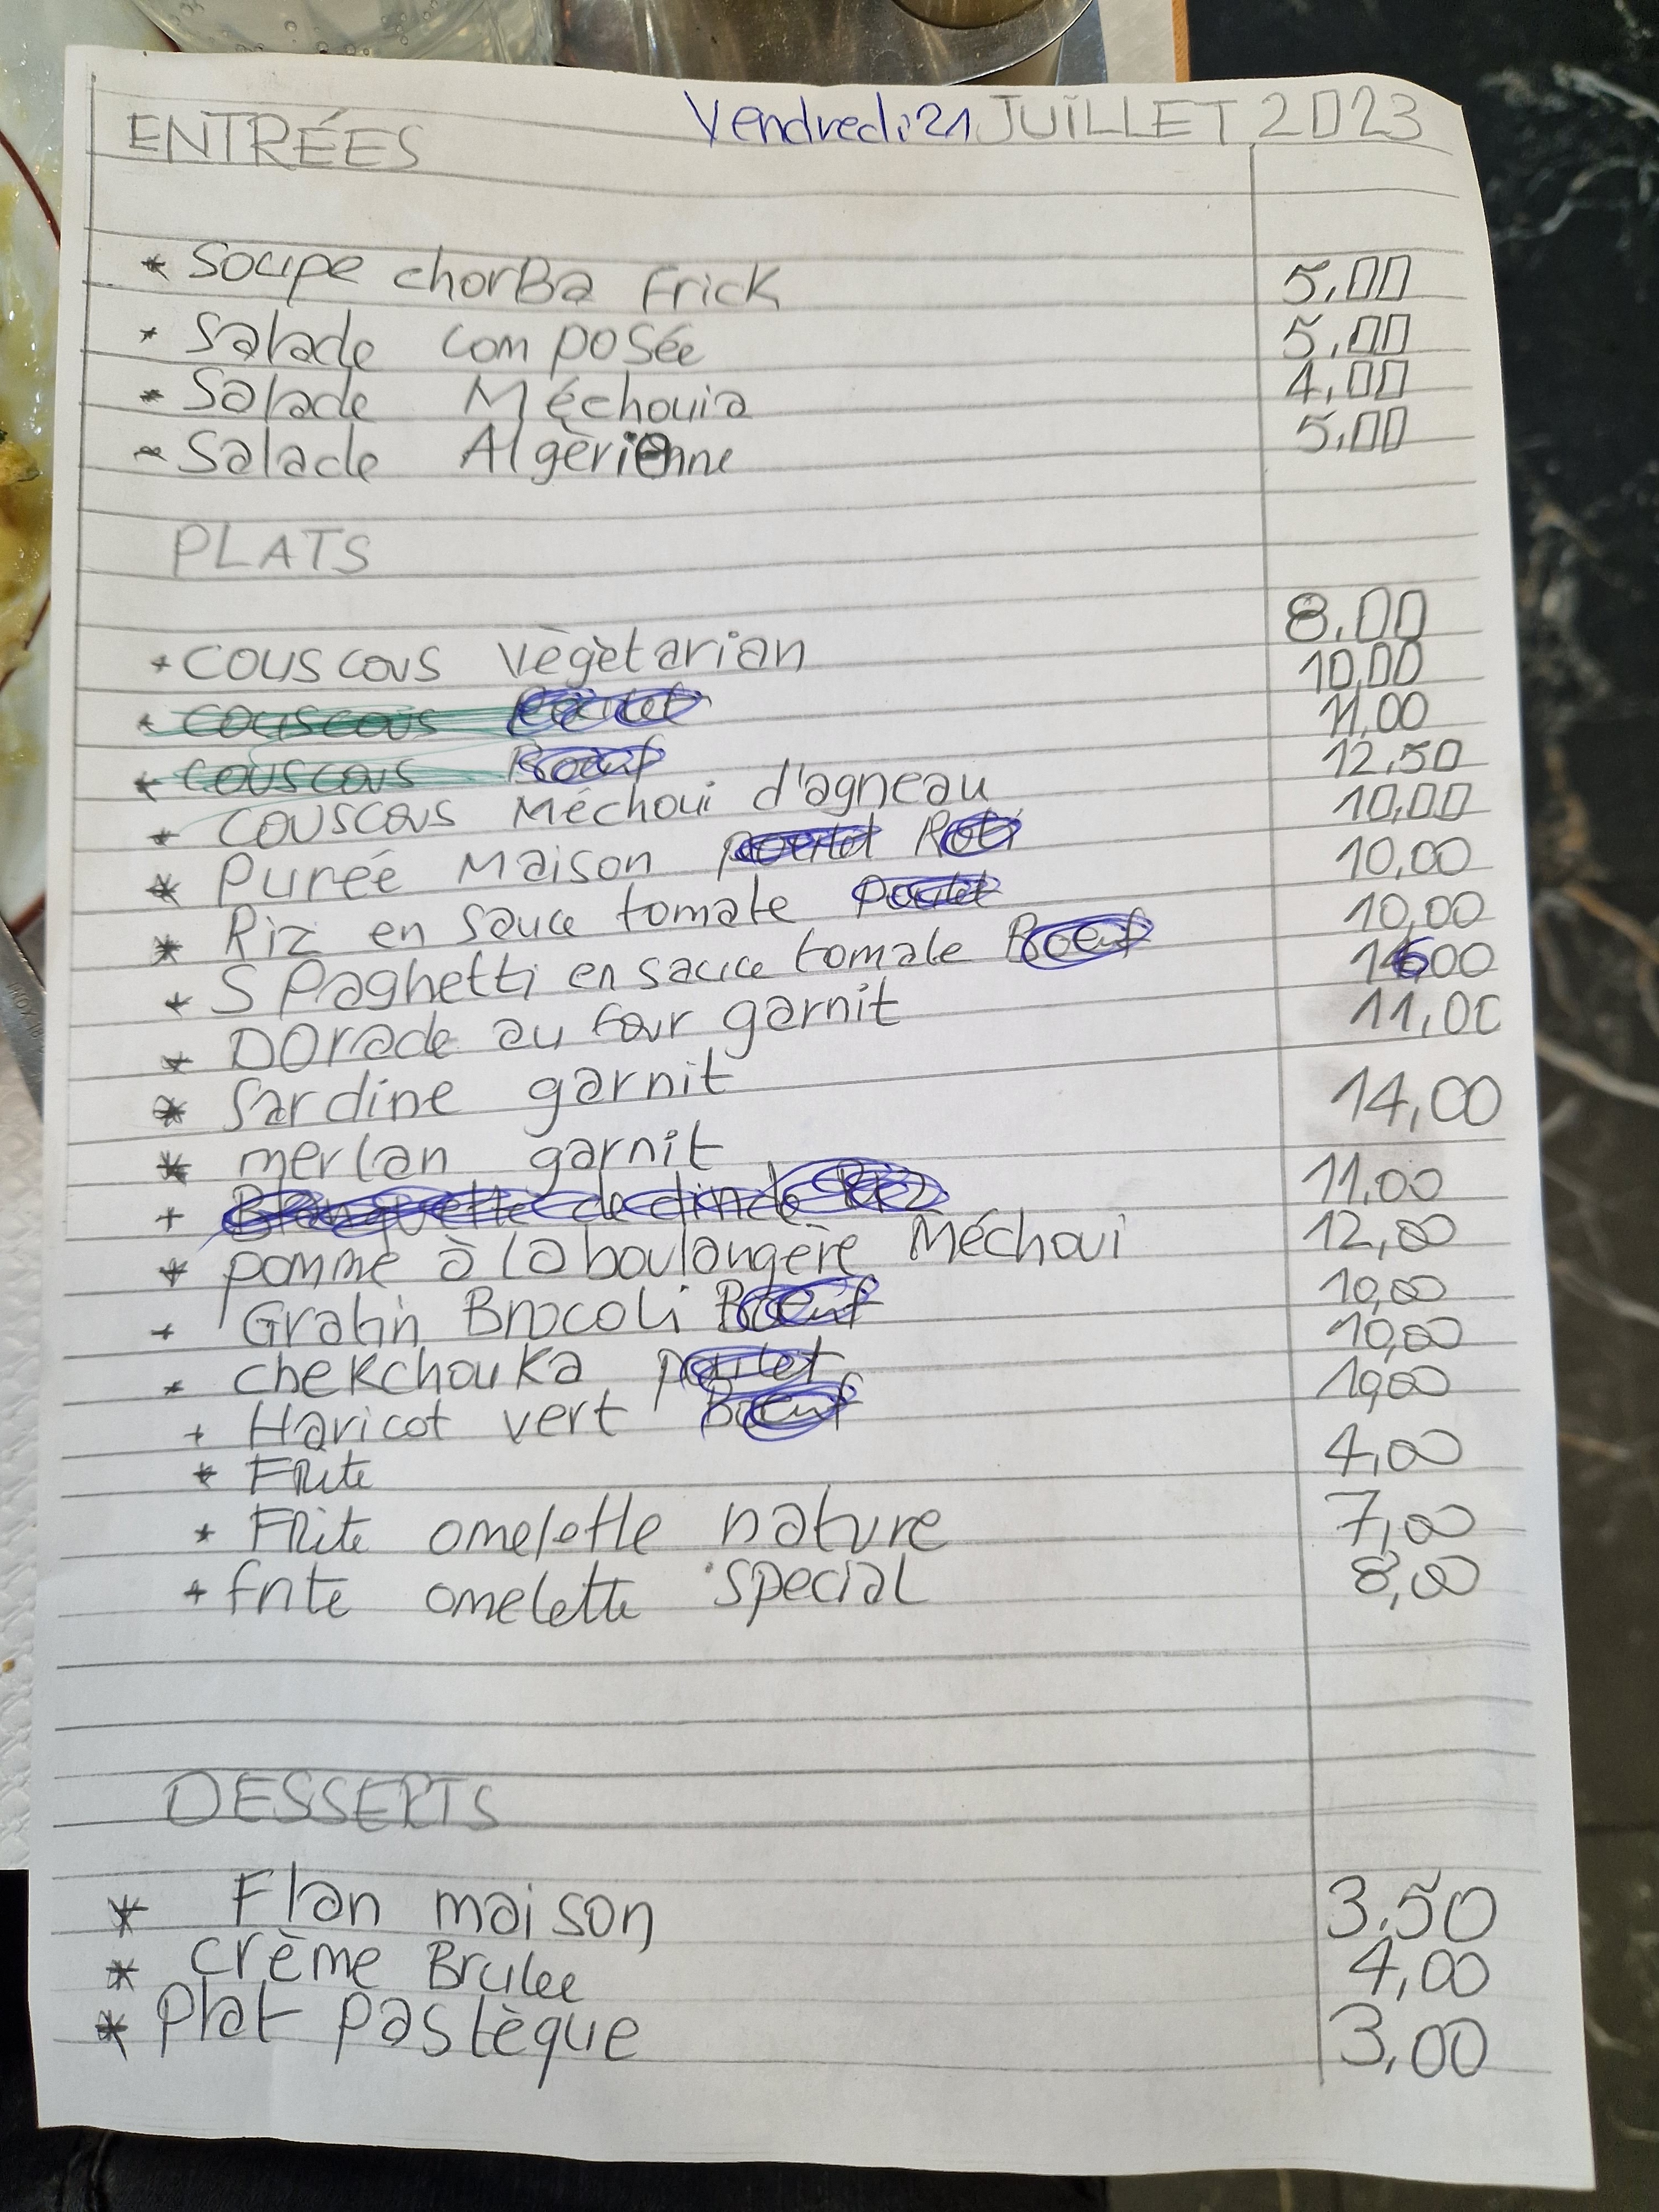 ENTRÉES Vendredi 21 JUILLET 2023
* Soupe chorBa Frick 5,00
* Salade composée 5,00
* Salade Méchouia 4,00
* Salade Algèrienne 5,00
PLATS
* couscous vègètarian 8,00
* couscous Poulet 10,00
* couscous Boeuf 11,00
* couscous Méchoui d'agneau 12,50
* Puréé Maison poulet Roti 10,00
* Riz en sauce tomate poulet 10,00
* SPaghetti en sauce tomate Boeuf 10,00
* Dorade au four garnit 1600
* Sardine garnit 11,00
* merlan garnit 14,00
* Blanquette de dinde Riz 11,00
* pomme à la boulangère Méchoui 12,00
* Gratin Brocoli Boeuf 10,00
* chekchouka poulet 10,00
* Haricot vert Boeuf 10,00
* Frite 4,00
* Frite omelette nature 7,00
* frite omelette special 8,00
DESSERTS
* Flan maison 3,50
* crème Brulee 4,00
* Plat pastèque 3,00